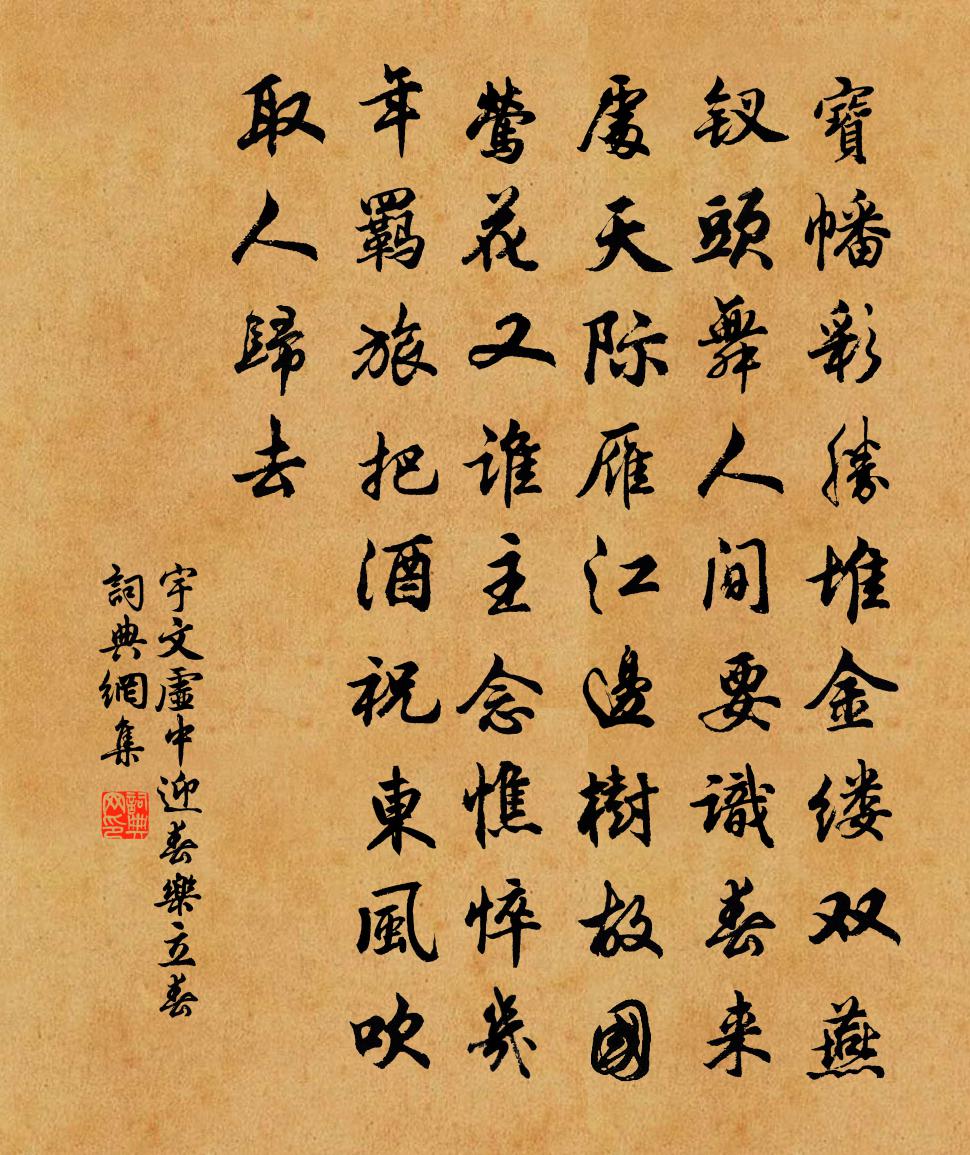 寶幡彩勝堆金缕双燕
钗頭舞人间要識春来
處天际雁江邊樹故國
鶯花又谁主念憔悴幾
年羁旅把酒祝東風吹
取人歸去
宇文虛中迎春樂立春
詞典網集
詞典网印